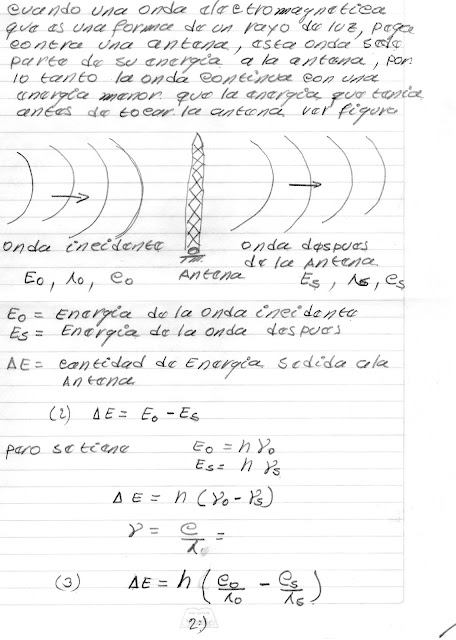 cuando una onda electromagnetica
que es una forma de un rayo de luz, pega
contra una antena, esta onda sede
parte de su energia a la antena, por
lo tanto la onda continua con una
energia menor que la energia que tenia
antes de tocar la antena ver figura
onda incidente
E₀, λ₀, c₀
Antena
onda despues
de la Antena
Es, λs, cs
E₀ = Energia de la onda incidente
Es = Energia de la onda despues
ΔE = cantidad de Energia sedida a la
Antena
(2) ΔE = E₀ - Es
pero se tiene E₀ = h γ₀
Es = h γs
ΔE = h (γ₀ - γs)
γ = c/λ =
(3) ΔE = h (c₀/λ₀ - cs/λs)
2.)